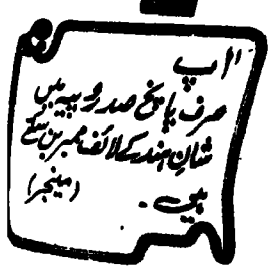 آپ
صرف پانچ صد روپیہ میں
شان ہند کے لائف ممبر بن سکتے
ہیں۔ (مینجر)